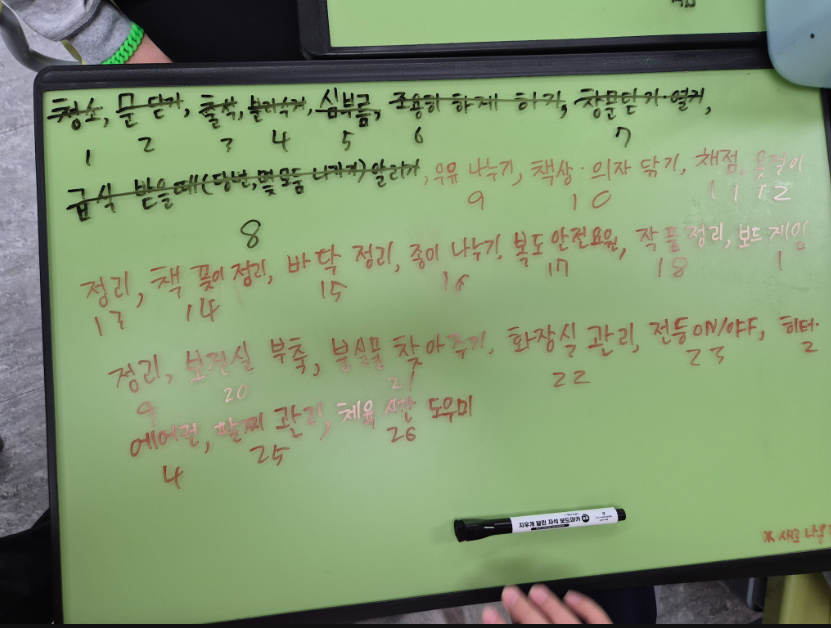 청소, 문 닫기, 출석, 불러주기, 심부름, 조용히 하게 하기, 창문닫기·열기,
1 2 3 4 5 6 7
급식 받을때(당번, 몇모둠 나가기) 알리기, 우유 나누기, 책상·의자 닦기, 채점, 옷걸이
8 9 10 11 12
정리, 책 꽂이 정리, 바닥 정리, 종이 나누기, 복도 안전요원, 작품 정리, 보드 게임
13 14 15 16 17 18 1
정리, 보건실 부축, 분실물 찾아주기, 화장실 관리, 전등ON/OFF, 히터·
9 20 21 22 23 2
에어컨, 팔찌 관리, 체육 시간 도우미
4 25 26
지우개 달린 자석 보드마카
※ 새로 나온